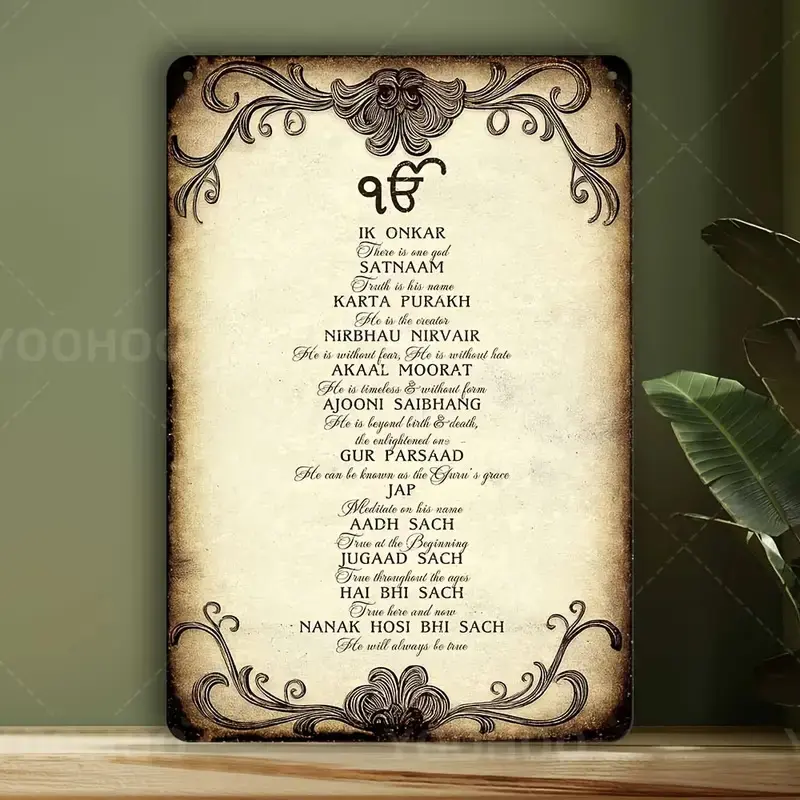 ੴ
IK ONKAR
There is one god
SATNAAM
Truth is his name
KARTA PURAKH
He is the creator
NIRBHAU NIRVAIR
He is without fear, He is without hate
AKAAL MOORAT
He is timeless & without form
AJOONI SAIBHANG
He is beyond birth & death,
the enlightened one
GUR PARSAAD
He can be known as the Guru's grace
JAP
Meditate on his name
AADH SACH
True at the Beginning
JUGAAD SACH
True throughout the ages
HAI BHI SACH
True here and now
NANAK HOSI BHI SACH
He will always be true